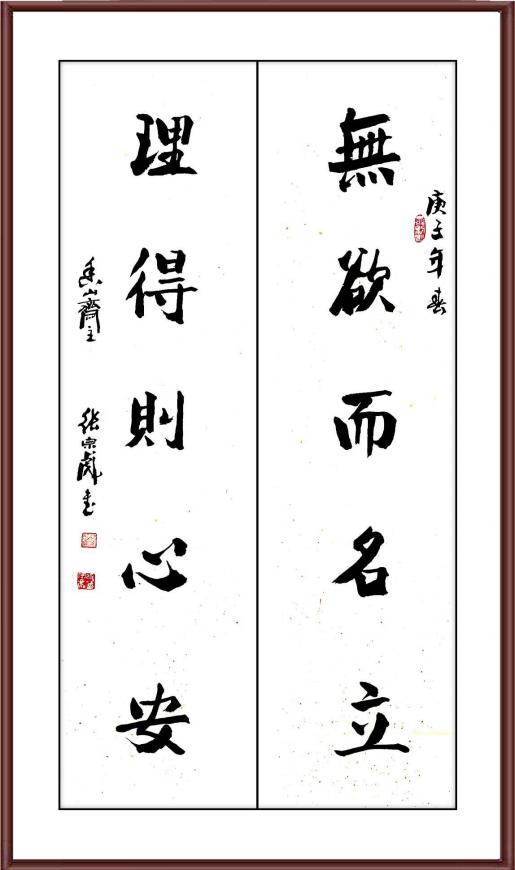 庚子年春
無欲而名立
理得則心安
香山齋主
張宗彪書